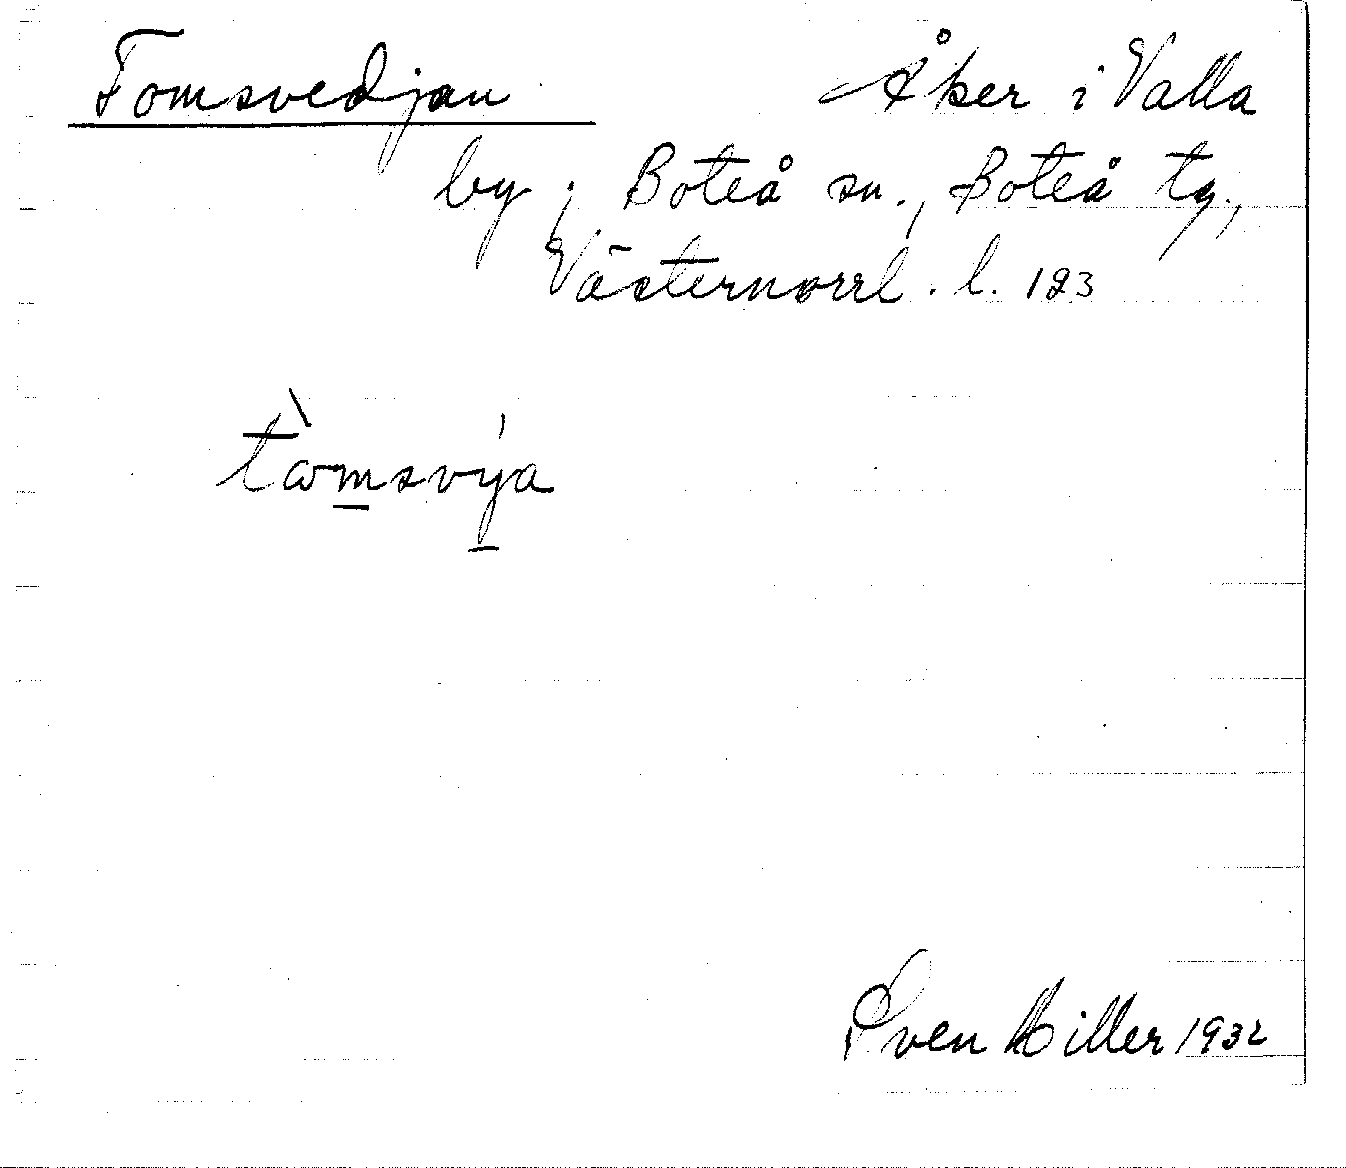 Tomsvedjan Åker i Valla
by, Boteå sn., Boteå tg.,
Västernorrl. l. 123
tòmsvýa
Sven Hiller 1932